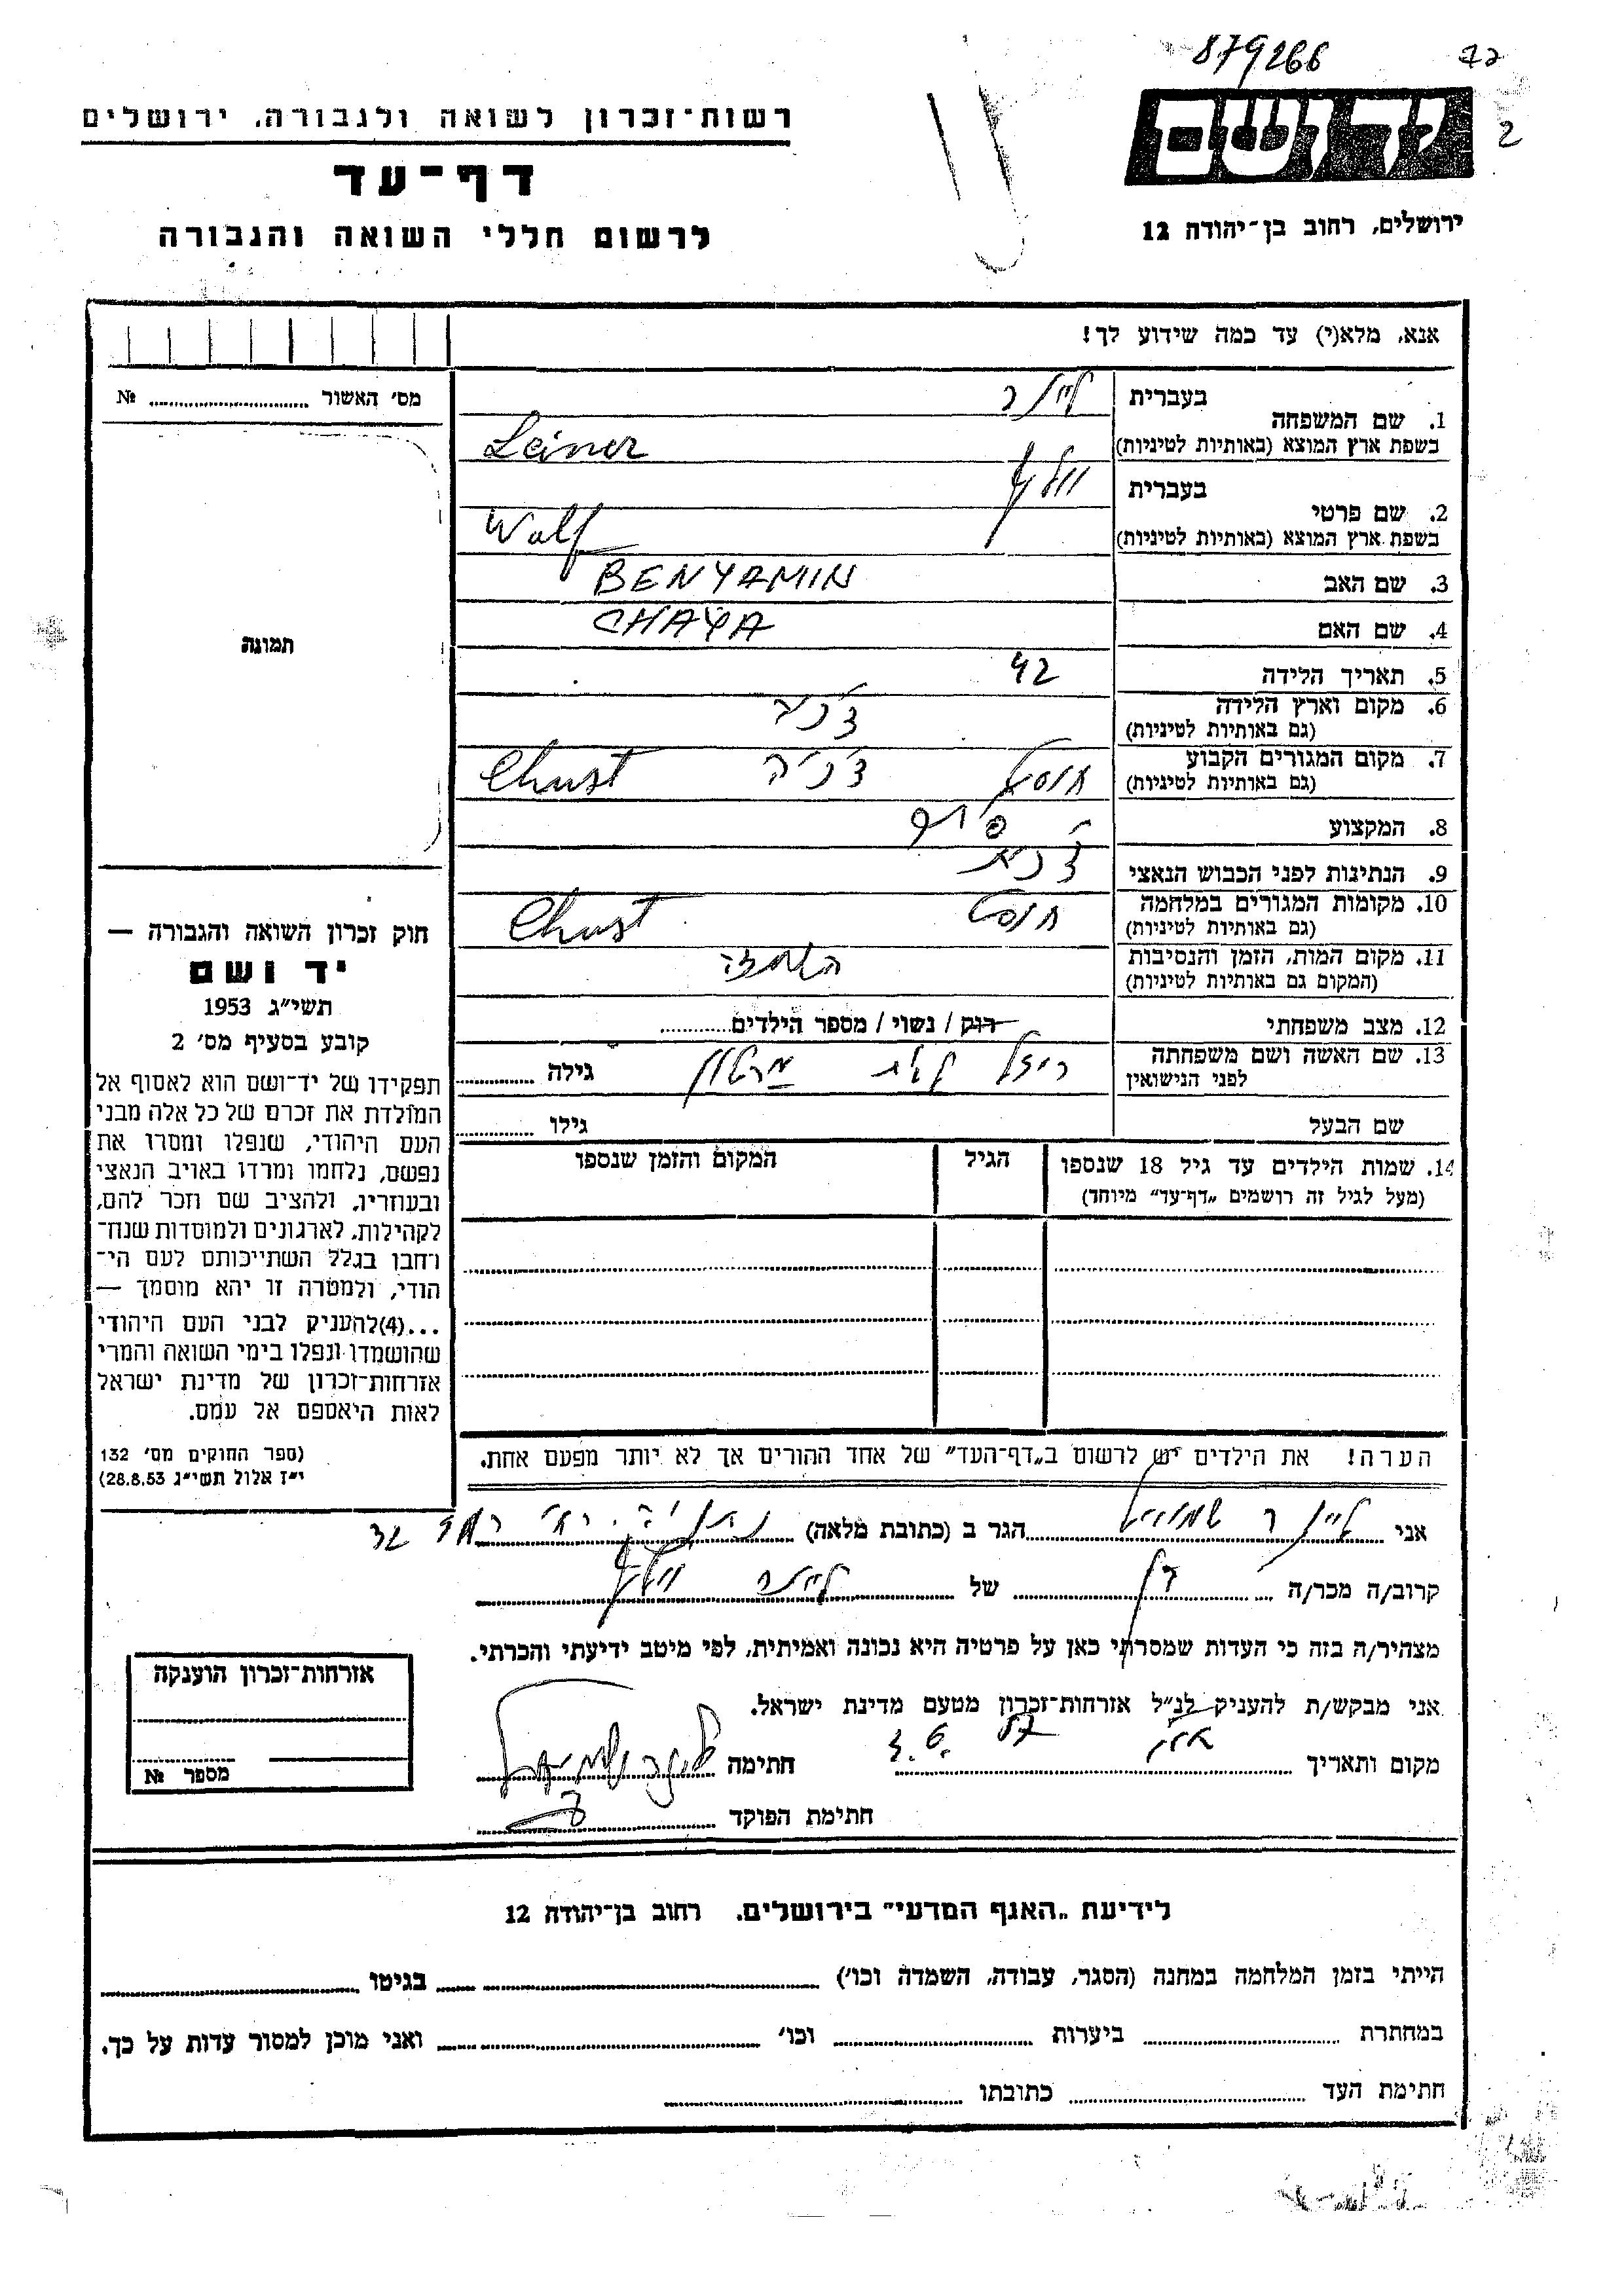 879266
רשות־זכרון לשואה ולגבורה, ירושלים
יד ושם
2
דף־עד
ירושלים, רחוב בן־יהודה 12
לרשום חללי השואה והגבורה
אנא, מלא(י) עד כמה שידוע לך!
מס' האשור № ........
1. שם המשפחה
בעברית
לינר
בשפת ארץ המוצא (באותיות לטיניות)
Leiner
2. שם פרטי
בעברית
וולף
בשפת ארץ המוצא (באותיות לטיניות)
Wolf
3. שם האב
BENYAMIN
4. שם האם
CHAYA
5. תאריך הלידה
42
6. מקום וארץ הלידה
(גם באותיות לטיניות)
צ'כיה
7. מקום המגורים הקבוע
(גם באותיות לטיניות)
חוסט צ'כיה Chust
8. המקצוע
9. הנתינות לפני הכבוש הנאצי
צ'כית
10. מקומות המגורים במלחמה
(גם באותיות לטיניות)
חוסט Chust
11. מקום המות, הזמן והנסיבות
(המקום גם באותיות לטיניות)
השמדה
12. מצב משפחתי
רוק / נשוי / מספר הילדים........
13. שם האשה ושם משפחתה
לפני הנישואין
רייזל לבית גילה ........
שם הבעל
גילו ........
14. שמות הילדים עד גיל 18 שנספו
(מעל לגיל זה רושמים „דף־עד” מיוחד)
הגיל
המקום והזמן שנספו
הערה! את הילדים יש לרשום ב„דף־העד” של אחד ההורים אך לא יותר מפעם אחת.
תמונה
חוק זכרון השואה והגבורה —
יד ושם
תשי"ג 1953
קובע בסעיף מס' 2
תפקידו של יד־ושם הוא לאסוף אל
המולדת את זכרם של כל אלה מבני
העם היהודי, שנפלו ומסרו את
נפשם, נלחמו ומרדו באויב הנאצי
ובעוזריו, ולהציב שם וזכר להם,
לקהילות, לארגונים ולמוסדות שנח־
רחבו בגלל השתייכותם לעם הי־
הודי, ולמטרה זו יהא מוסמך —
...(4)להעניק לבני העם היהודי
שהושמדו ונפלו בימי השואה והמרי
אזרחות־זכרון של מדינת ישראל
לאות היאספם אל עמם.
(ספר החוקים מס' 132
י"ז אלול תשי"ג 28.8.53)
אני לינר שמואל הגר ב (כתובת מלאה) נתניה 32
קרוב/ה מכר/ה בן של לינר וולף
מצהיר/ה בזה כי העדות שמסרתי כאן על פרטיה היא נכונה ואמיתית, לפי מיטב ידיעתי והכרתי.
אני מבקש/ת להעניק לנ"ל אזרחות־זכרון מטעם מדינת ישראל.
מקום ותאריך 3.6.57 חתימה לינר שמואל
חתימת הפוקד
אזרחות־זכרון הוענקה
מספר №
לידיעת „האגף המדעי” בירושלים, רחוב בן־יהודה 12
הייתי בזמן המלחמה במחנה (הסגר, עבודה, השמדה וכו') ........ בגיטו ........
במחתרת ........ ביערות ........ וכו' ........ ואני מוכן למסור עדות על כך.
חתימת העד ........ כתובתו ........